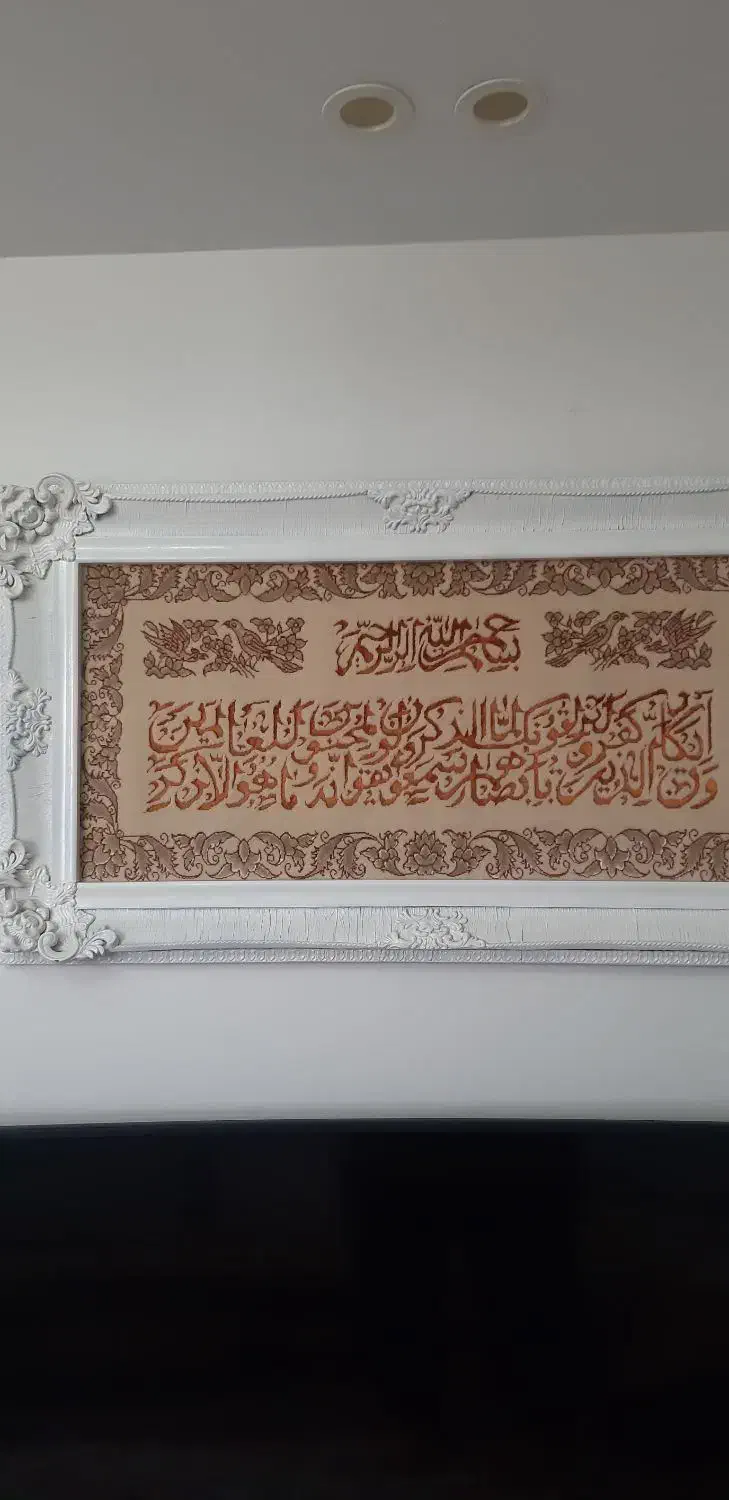 بسم الله الرحمن الرحیم
وان یکاد الذین کفروا لیزلقونک بابصارهم لما سمعوا الذکر و یقولون انه لمجنون و ما هو الا ذکر للعالمین